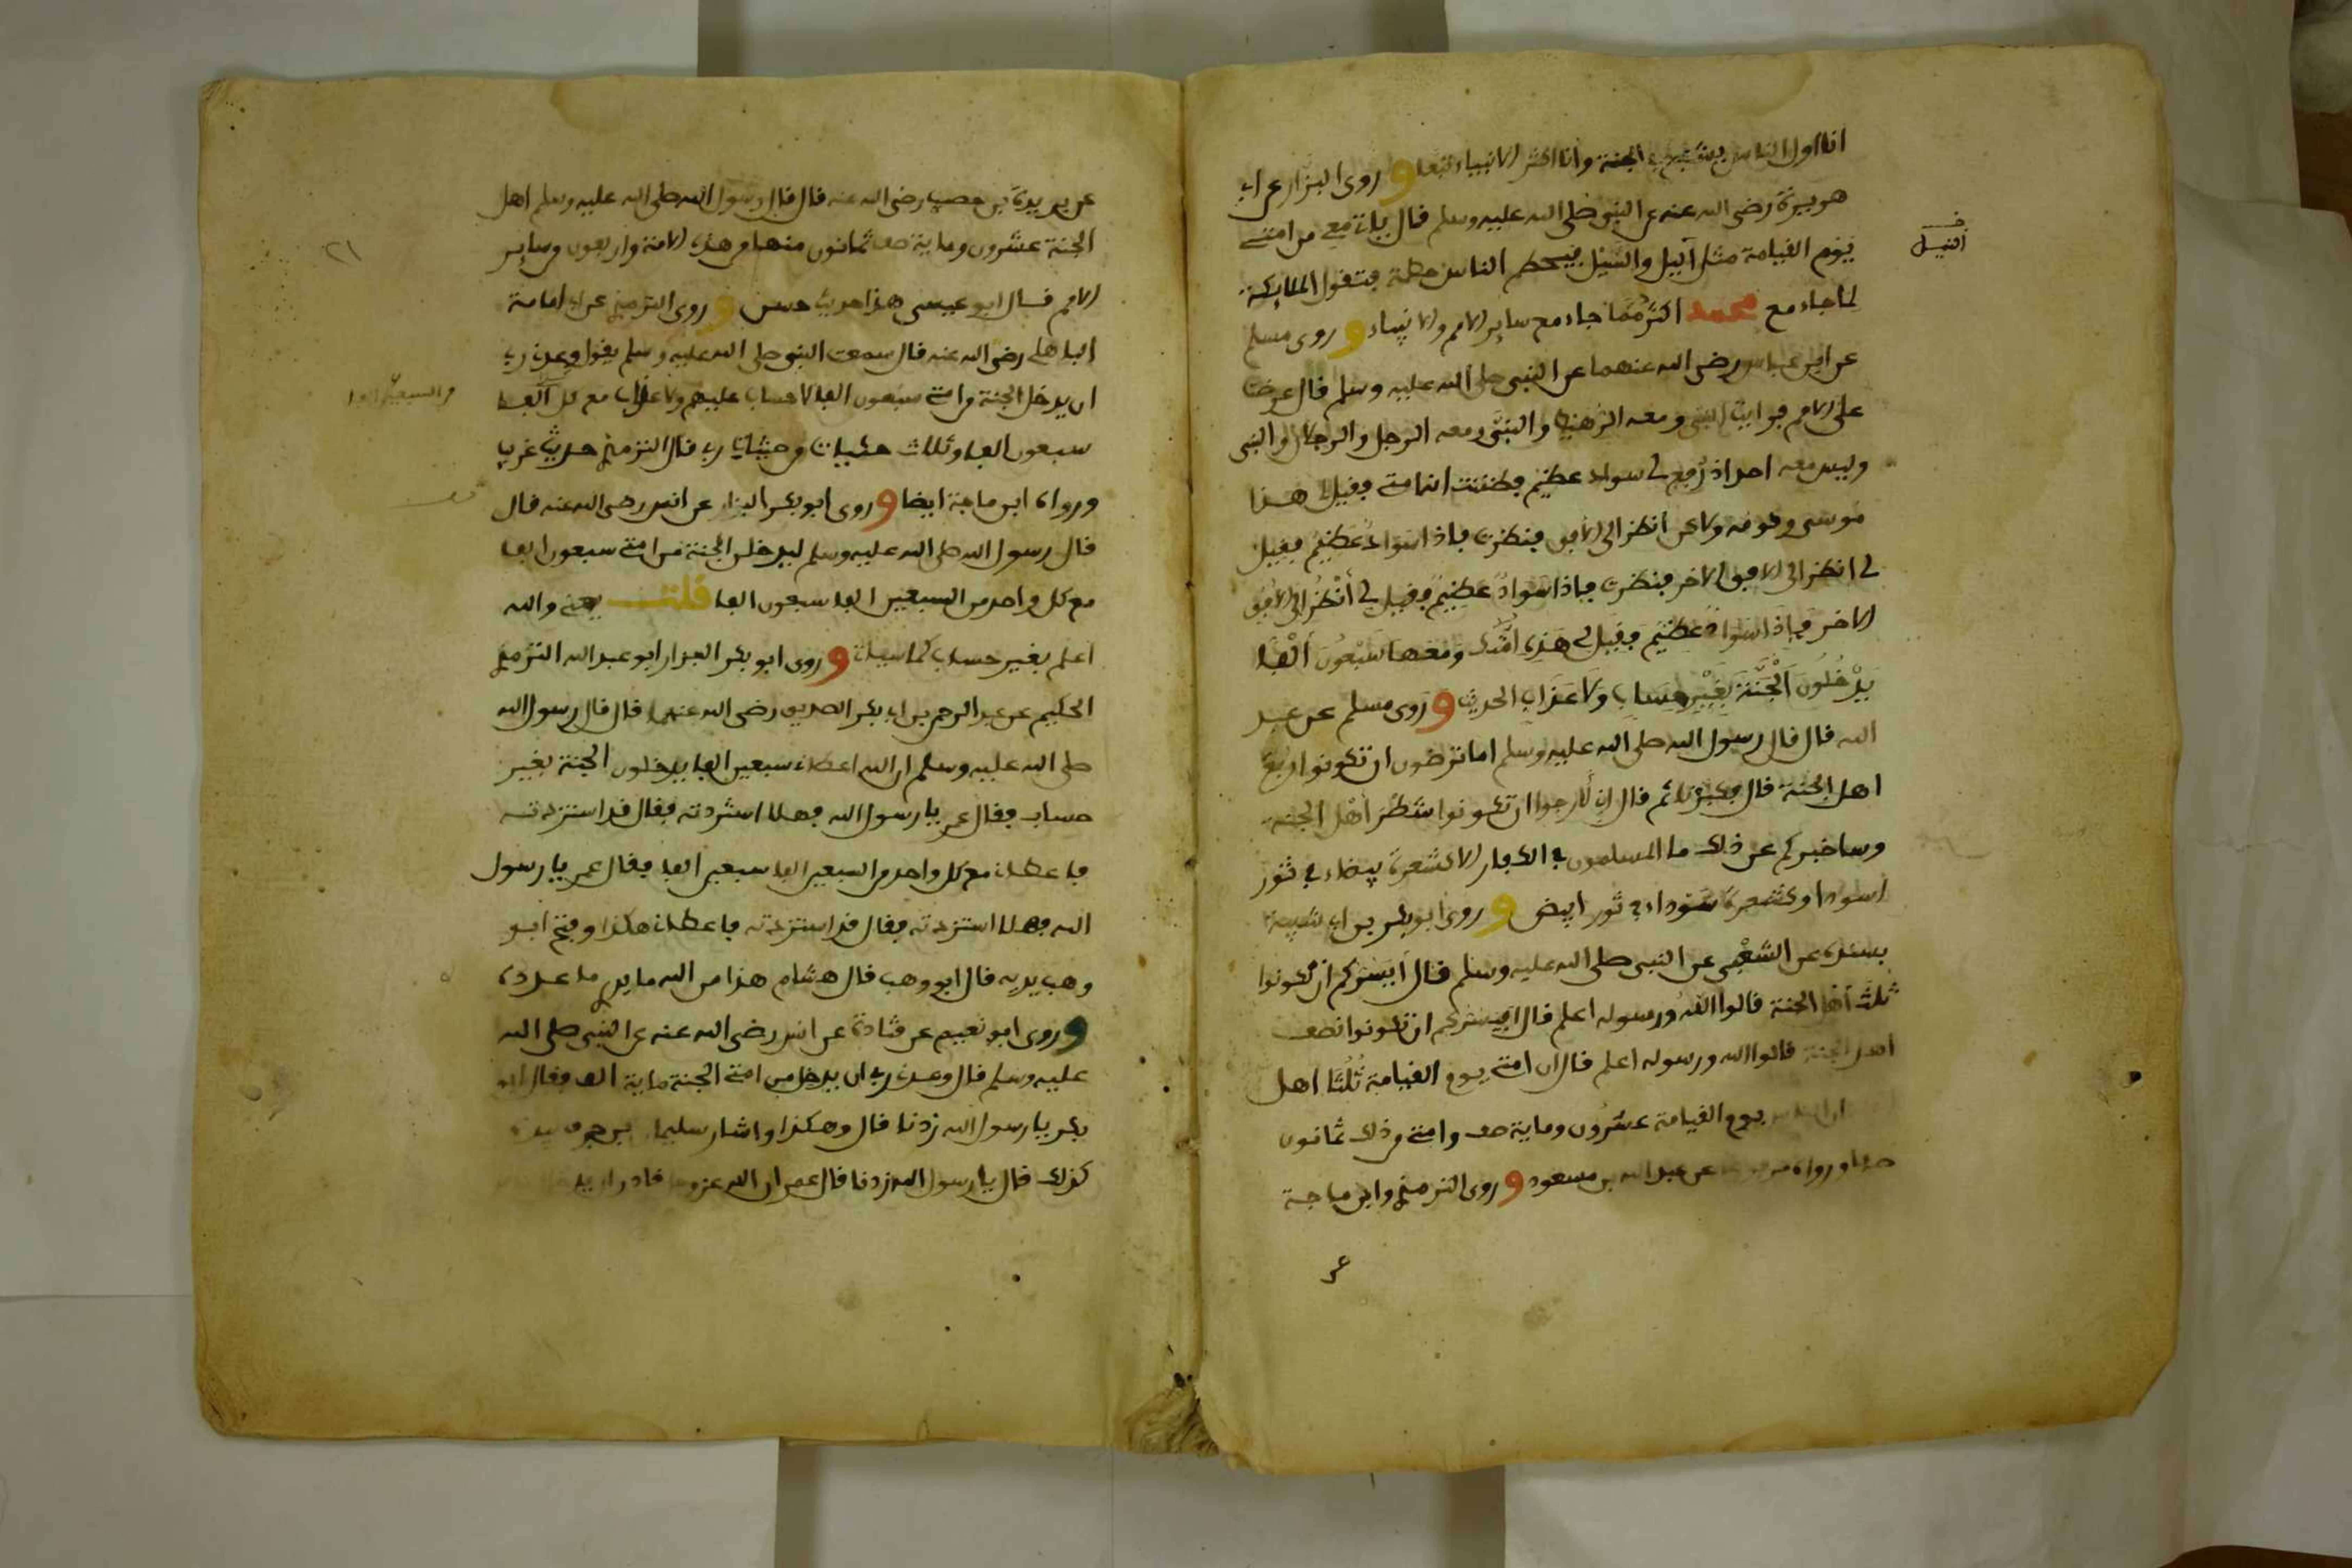 انا اول الناس يشفع في الجنة وانا اكثر الانبياء تبعا وروى البزار عن ابي
هريرة رضي الله عنه عن النبي صلى الله عليه وسلم قال ياتي معي من امتي
يوم القيامة مثل اليل والسيل فيحطم الناس حطمة فتقول الملايكة
النيل
لما جاء مع محمد اكثر مما جاء مع ساير الامم والانبياء وروى مسلم
عن ابن عباس رضي الله عنهما عن النبي صلى الله عليه وسلم قال عرضت
علي الامم فرايت النبي ومعه الرهيط والنبي ومعه الرجل والرجلان والنبي
وليس معه احد اذ رفع لي سواد عظيم فظننت انها متي فقيل لي هذا
موسى وقومه ولاكن انظر الى الافق فنظرت فاذا سواد عظيم فقيل
لي انظر الى الافق الاخر فنظرت فاذا سواد عظيم فقيل لي أنظر الى الافق
الاخر فإذا سواد عظيم فقيل لي هذه امتك ومعها سبعون ألفا
يدخلون الجنة بغير حساب ولا عذاب الحديث وروى مسلم عن عبد
الله قال قال رسول الله صلى الله عليه وسلم اما ترضون ان تكونوا ربع
اهل الجنة قال فكبرنا ثم قال اني لارجوا ان تكونوا شطر أهل الجنة
وساخبركم عن ذلك ما المسلمون في الكفار الا كشعرة بيضاء في ثور
اسود او كشعرة سوداء في ثور ابيض وروى ابو بكر بن ابي شيبة
بسنده عن الشعبي عن النبي صلى الله عليه وسلم قال أيسركم ان تكونوا
ثلث أهل الجنة قالوا الله ورسوله اعلم قال ايسركم ان تكونوا نصف
اهل الجنة قالوا الله ورسوله اعلم قال ان امتي يوم القيامة ثلثا اهل
الناس يوم القيامة عشرون وماية صف وامتي من ذلك ثمانون
صفا ورواه عن عبد الله بن مسعود وروى الترمذي وابن ماجة
عن
عن بريدة بن حصيب رضي الله عنه قال قال رسول الله صلى الله عليه وسلم اهل
الجنة عشرون وماية صف ثمانون منها من هذه الامة واربعون من ساير
٢١
الامم قال ابو عيسى هذا حديث حسن وروى الترمذي عن ابي امامة
الباهلي رضي الله عنه قال سمعت النبي صلى الله عليه وسلم يقول وعدني ربي
ان يدخل الجنة من امتي سبعون الفا لا حساب عليهم ولا عذاب مع كل ألف
من السبعين الفا
سبعون الفا وثلاث حثيات من حثيات ربي قال الترمذي حديث غريب
ورواه ابن ماجة ايضا وروى ابو بكر البزار عن انس رضي الله عنه قال
قال رسول الله صلى الله عليه وسلم ليدخلن الجنة من امتي سبعون الفا
مع كل واحد من السبعين الفا سبعون الفا قلت يعني والله
اعلم بغير حساب كما سياتي وروى ابو بكر البزار ابو عبد الله الترمذي
الحكيم عن عبد الرحمن بن ابي بكر الصديق رضي الله عنهما قال قال رسول الله
صلى الله عليه وسلم ان الله اعطاني سبعين الفا يدخلون الجنة بغير
حساب فقال عمر يا رسول الله فهلا استزدته فقال قد استزدته
فاعطاني مع كل واحد من السبعين الفا سبعين الفا فقال عمر يا رسول
الله فهلا استزدته فقال قد استزدته فاعطاني هكذا وفتح ابو
وهب يديه قال ابو وهب قال هشام هذا من الله ما يدري ما عدده
وروى ابو نعيم عن قتادة عن انس رضي الله عنه عن النبي صلى الله
عليه وسلم قال وعدني ربي ان يدخل من امتي الجنة ماية الف فقال ابو
بكر يا رسول الله زدنا قال وهكذا واشار سليمان بن حرب بيده
كذلك قال يا رسول الله زدنا فقال عمر ان الله عز وجل قادر ان يدخل